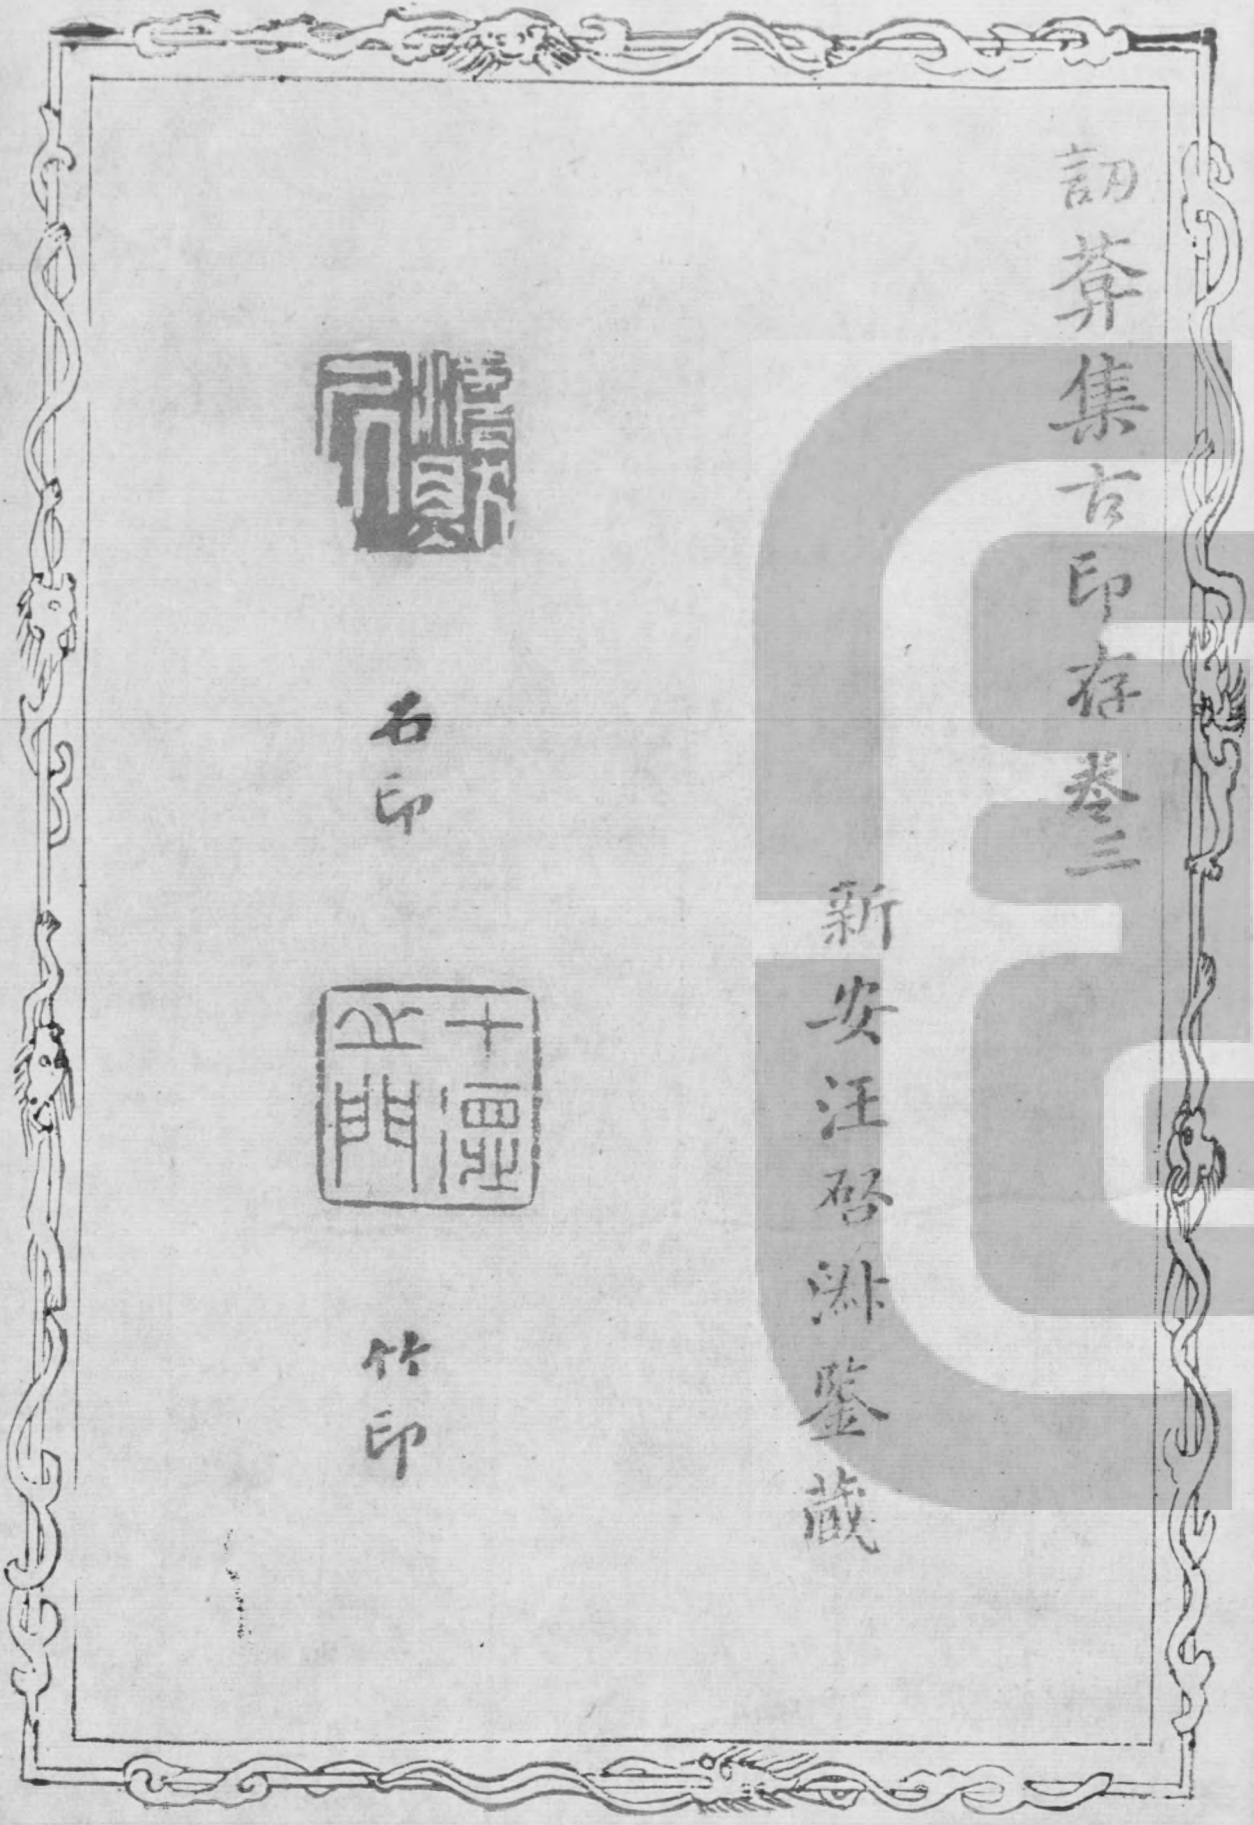 訒葊集古印存卷三
新安汪啓淑鑒藏
石印
十德之門
竹印